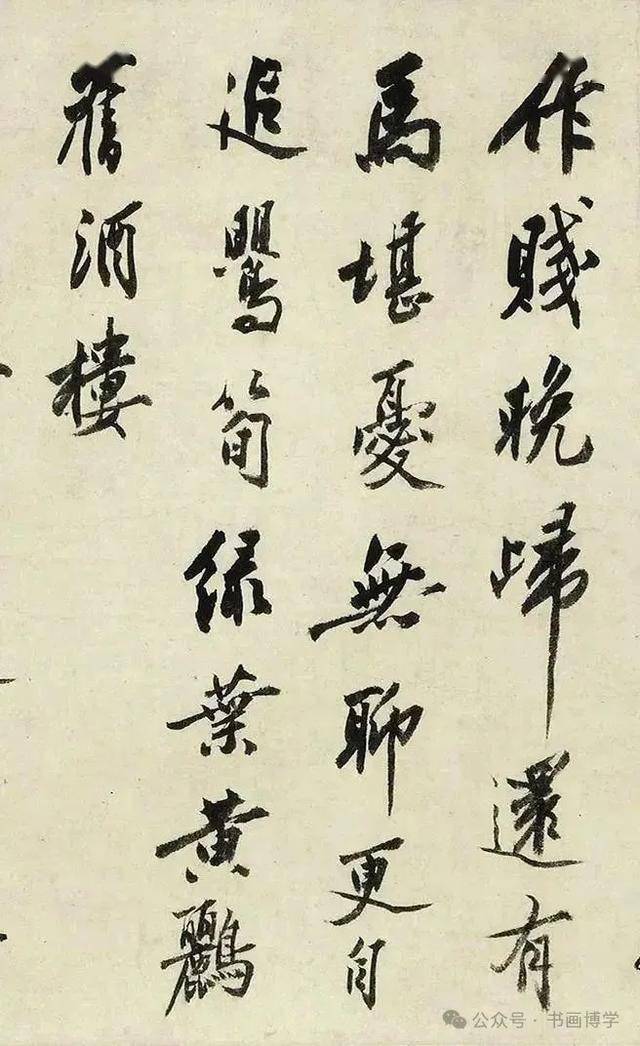 作賤晚歸還有
馬堪憂無聊更自
追鸎筍緑葉黃鸝
舊酒樓
公众号 · 书画博学